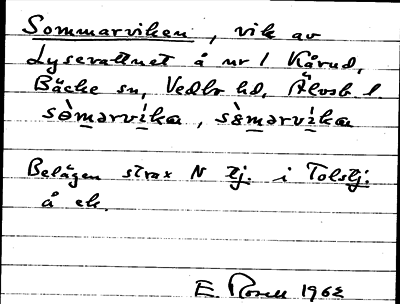 Sommarviken, vik av
Lysevattnet å nr 1 Kårud,
Bäcke sn, Vedbo hd, Älvsb. l.
sòmarvika, sòmərvika
Belägen strax N tj. i Tolstj.
å ek.
E. Rosell 1962